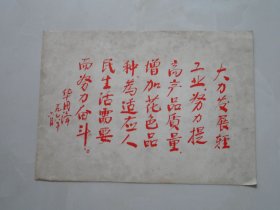 大力发展轻
工业,努力提
高产品质量,
增加花色品
种,为适应人
民生活需要
而努力奋斗。
华国锋